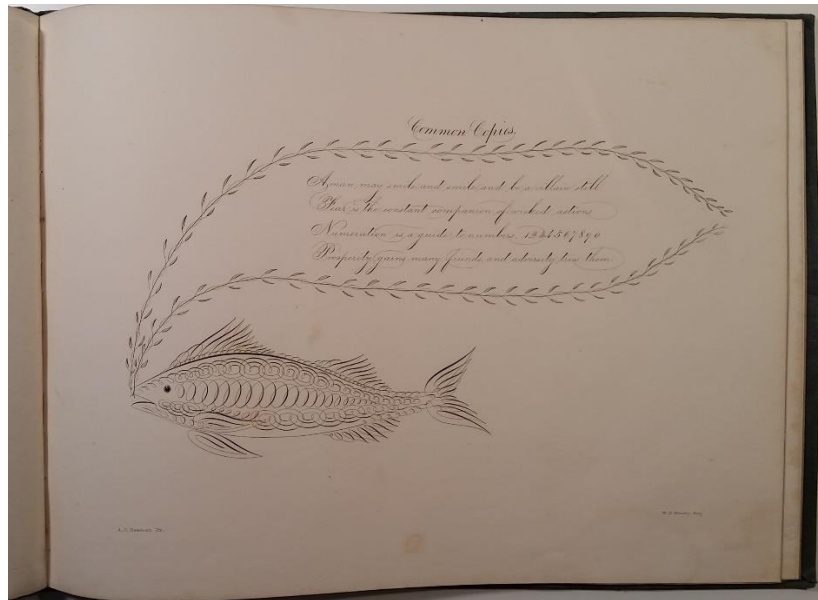 Common Copies.
A man may smile, and smile, and be a villain still
Fear is the constant companion of wicked actions
Numeration is a guide to numbers. 1234567890
Prosperity gains many friends, and adversity tries them